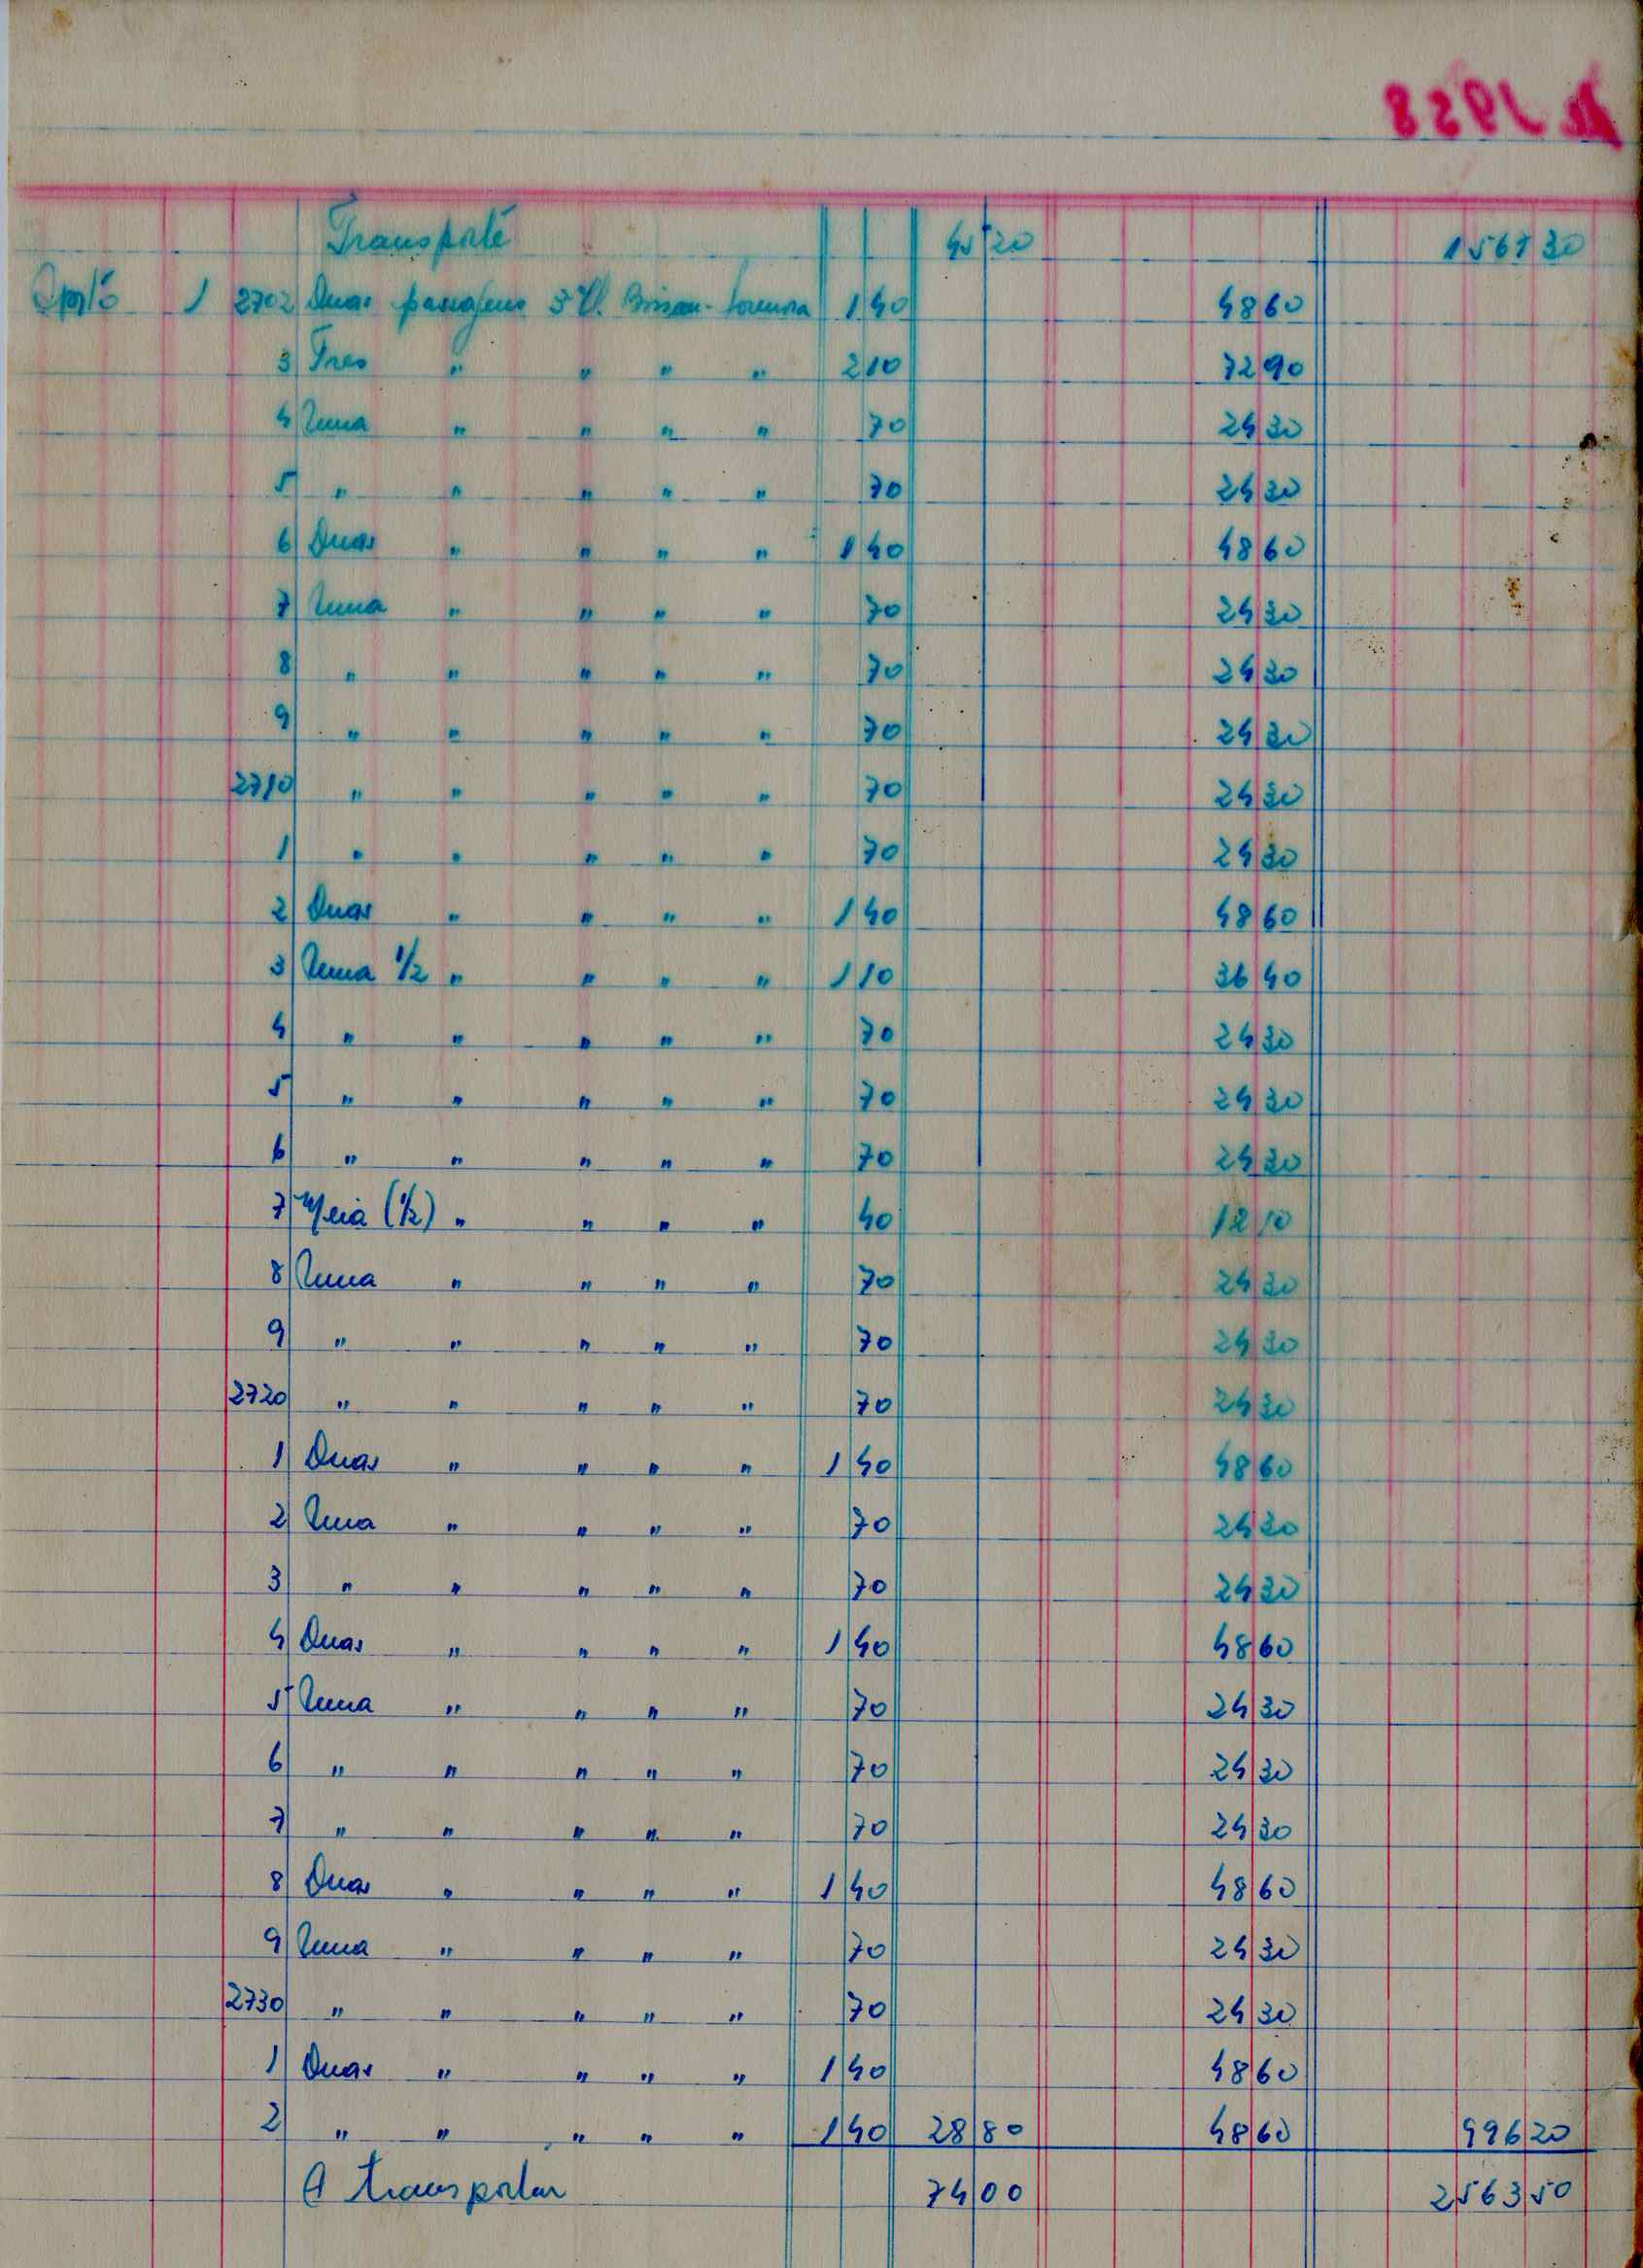 1958
Transporte 45 20 1567 30
1 2702 Duas passagens 3ª Cl. Bissau- 1 40 48 60
3 Tres " " " " 2 10 72 90
4 Uma " " " " 70 24 30
5 " " " " " 70 24 30
6 Duas " " " " 1 40 48 60
7 Uma " " " " 70 24 30
8 " " " " " 70 24 30
9 " " " " " 70 24 30
2710 " " " " " 70 24 30
1 " " " " " 70 24 30
2 Duas " " " " 1 40 48 60
3 Uma 1/2 " " " " 1 10 36 40
4 " " " " " 70 24 30
5 " " " " " 70 24 30
6 " " " " " 70 24 30
7 Meia (1/2) " " " " 40 12 10
8 Uma " " " " 70 24 30
9 " " " " " 70 24 30
2720 " " " " " 70 24 30
1 Duas " " " " 1 40 48 60
2 Uma " " " " 70 24 30
3 " " " " " 70 24 30
4 Duas " " " " 1 40 48 60
5 Uma " " " " 70 24 30
6 " " " " " 70 24 30
7 " " " " " 70 24 30
8 Duas " " " " 1 40 48 60
9 Uma " " " " 70 24 30
2730 " " " " " 70 24 30
1 Duas " " " " 1 40 48 60
2 " " " " " 1 40 28 80 48 60 996 20
A transportar 74 00 2563 50